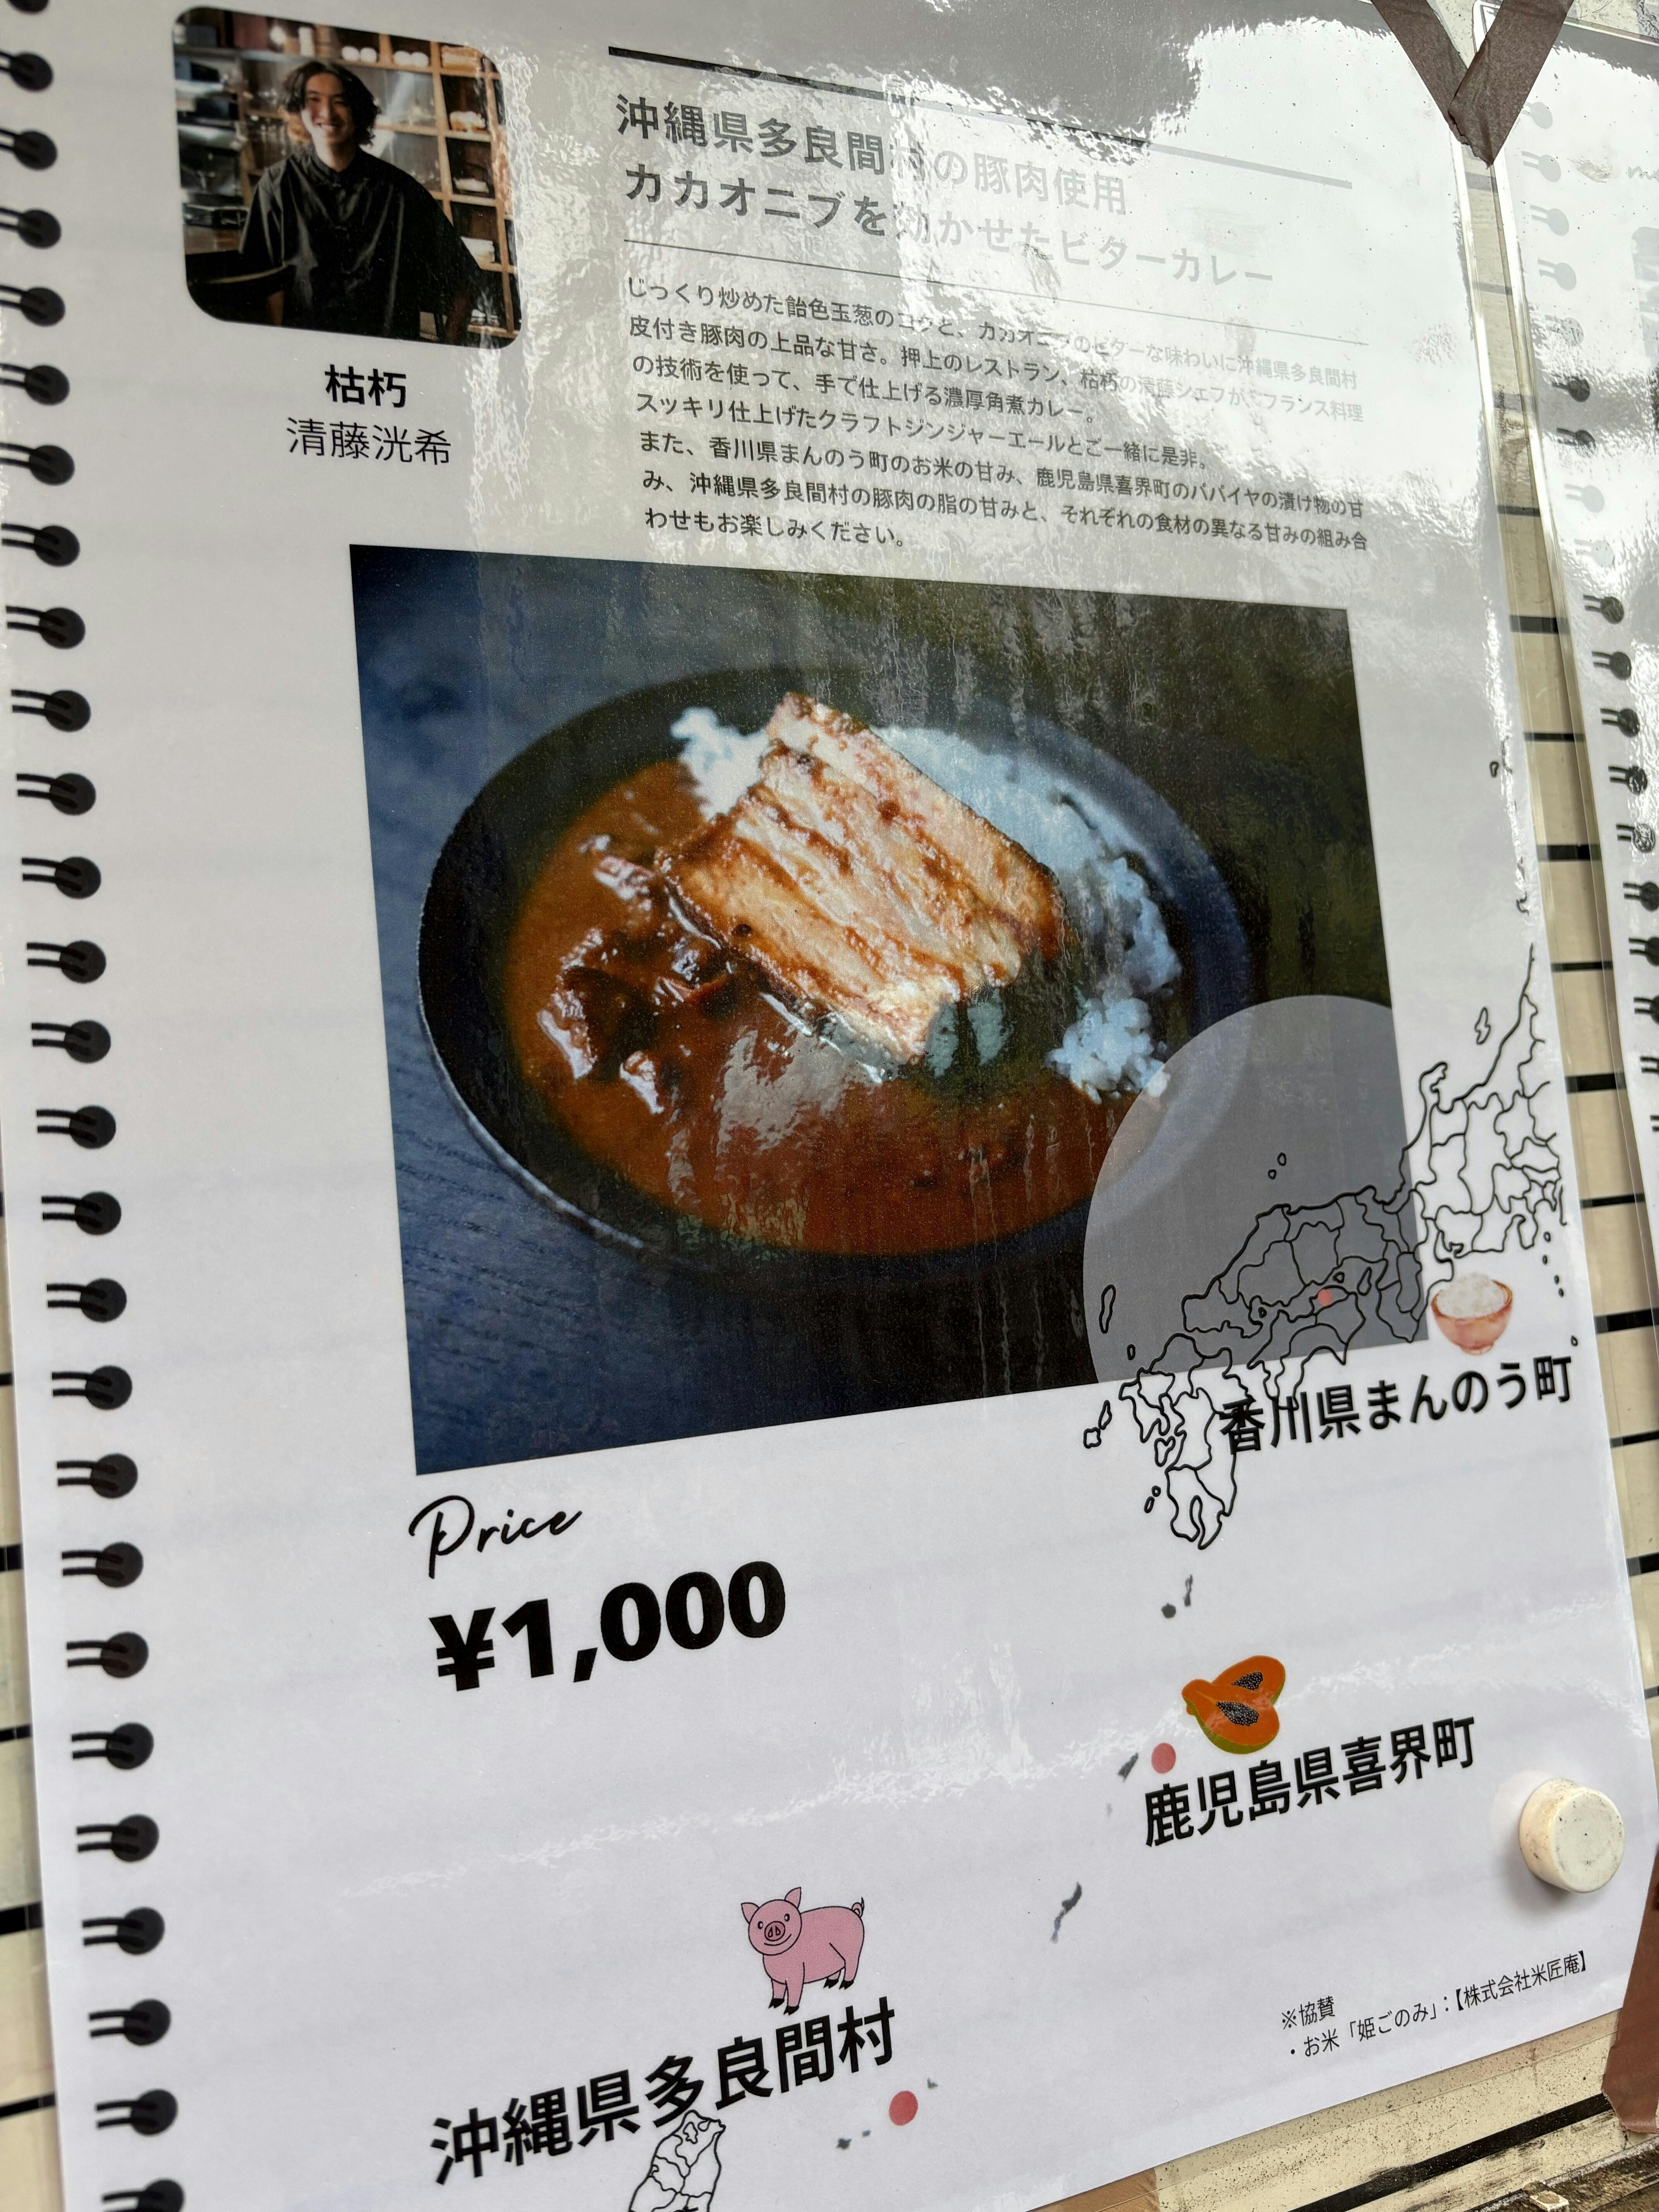 沖縄県多良間村の豚肉使用
カカオニブを効かせたビターカレー
じっくり炒めた飴色玉葱のコクと、カカオニブのビターな味わいに沖縄県多良間村
皮付き豚肉の上品な甘さ。押上のレストラン、枯朽の清藤シェフがフランス料理
の技術を使って、手で仕上げる濃厚角煮カレー。
スッキリ仕上げたクラフトジンジャーエールとご一緒に是非。
また、香川県まんのう町のお米の甘み、鹿児島県喜界町のパパイヤの漬け物の甘
み、沖縄県多良間村の豚肉の脂の甘みと、それぞれの食材の異なる甘みの組み合
わせもお楽しみください。
枯朽
清藤洸希
香川県まんのう町
Price
¥1,000
鹿児島県喜界町
沖縄県多良間村
※協賛
・お米「姫ごのみ」：【株式会社米匠庵】